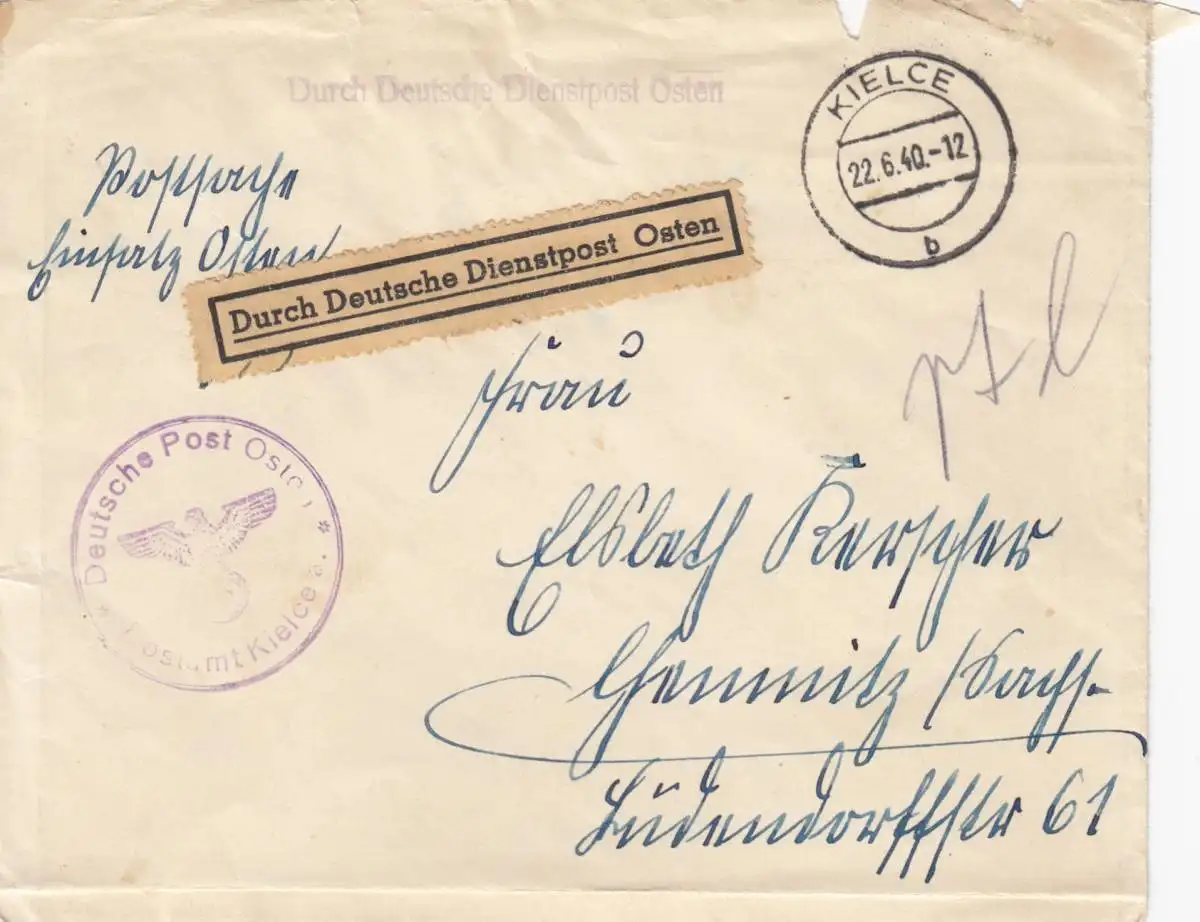 Durch Deutsche Dienstpost Osten
KIELCE
22.6.40.-12
b
Postsache
Einsatz Osten
Durch Deutsche Dienstpost Osten
Frau
Deutsche Post Osten
Postamt Kielce
Elsbeth Kerscher
Chemnitz /Sachs.
Lüdendorffstr 61